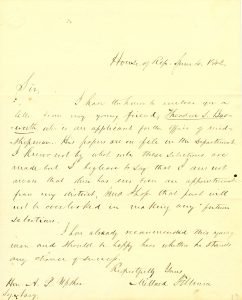 House of Rep. June 4, 1842
Sir,
I have the honor to enclose you a
letter from my young friend, Theodore S. Bos-
worth who is an applicant for the office of mid-
shipman. His papers are on file in the Department
I know not by what rule these selections are
made but I beg leave to say that I am not
aware that there has ever been an appointment
from my district, and I hope that fact will
not be overlooked in making any future
selections.
I have already recommended this young
man and should be happy to know whether he stands
any chance of success
Respectfully Yours
Hon. A. P. Upshur Millard Fillmore
Sy. Navy.